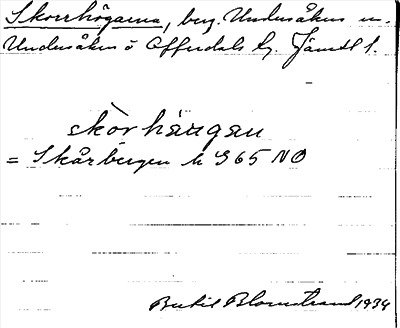 Skorrhögarna, berg. Undersåkers sn.
Undersåkers o Offerdals tg. Jämtl l.
skòrhäŋgan
= Skårbergen h 965 NO
Bertil Blomstrand 1934